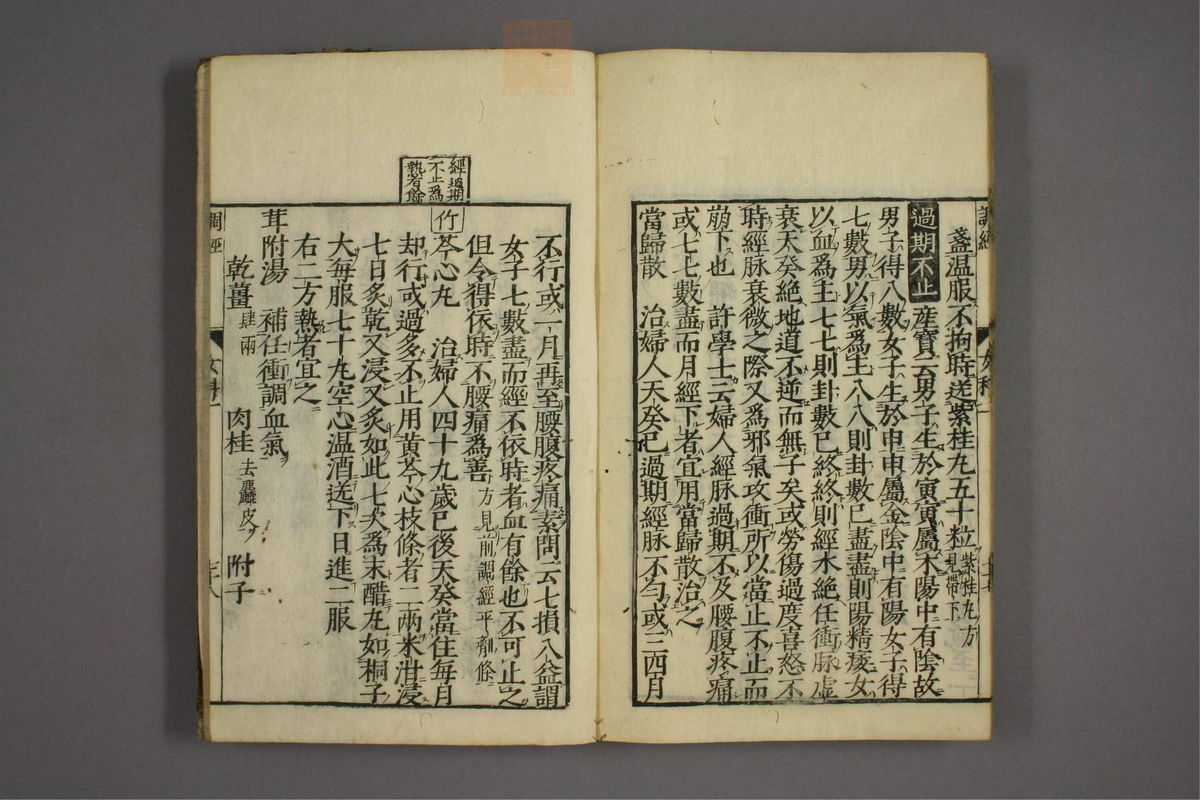 調經
女科一
盞温服不拘時送紫桂丸五十粒紫桂丸方見帶下
過期不止
産寶云男子生於寅寅屬木陽中有陰故
男子得八數女子生於申申屬金陰中有陽女子得
七數男以氣爲主八八則卦數已盡盡則陽精痿女
以血爲主七七則卦數已終終則經水絶任衝脉虚
衰天癸絶地道不逆而無子矣或勞傷過度喜怒不
時經脉衰微之際又爲邪氣攻衝所以當止不止而
崩下也　許學士云婦人經脉過期不及腰腹疼痛
或七七數盡而月經下者宜用當歸散治之
當歸散　治婦人天癸已過期經脉不勻或三四月
經過期
不止爲
熱有餘
不行或一月再至腰腹疼痛素問云七損八益謂
女子七數盡而經不依時者血有餘也不可止之
但令得依時不腰痛爲善方見前調經平劑條
竹
芩心丸　治婦人四十九歲已後天癸當住每月
却行或過多不止用黄芩心枝條者二兩米泔浸
七日炙乾又浸又炙如此七次爲末醋丸如桐子
大每服七十丸空心温酒送下日進二服
右二方熱者宜之
茸附湯　補任衝調血氣
乾薑肆兩　肉桂去麤皮　附子
調經
女科一
三八